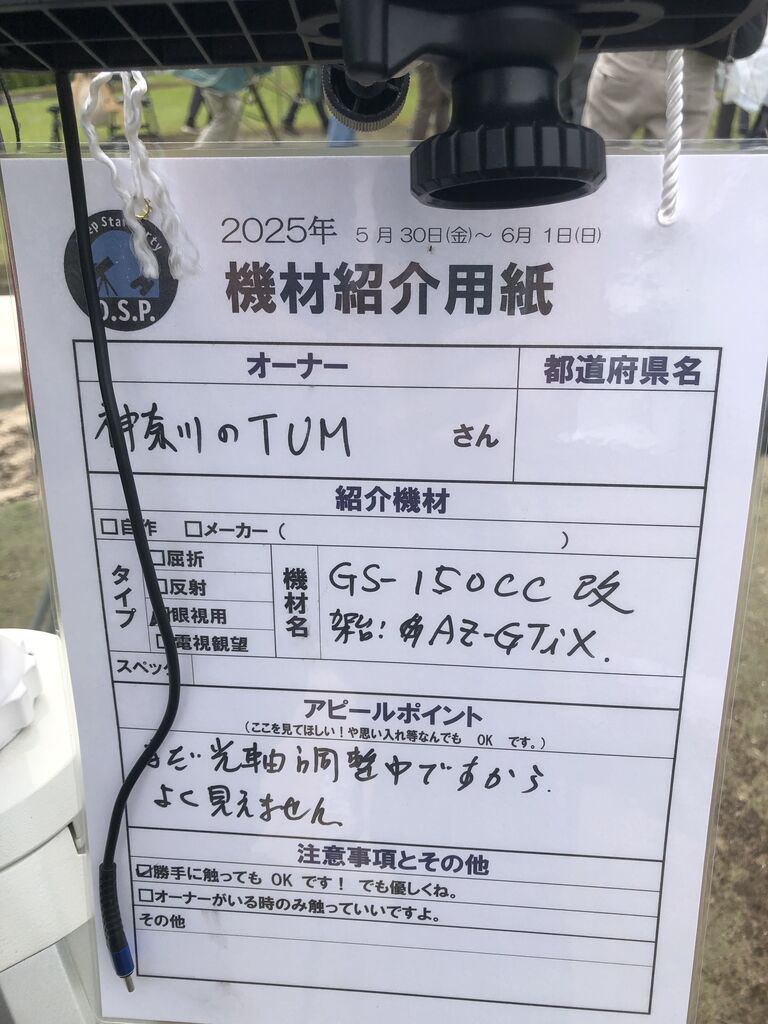 Star Party
D.S.P.
2025年 5月30日(金)～ 6月 1日(日)
機材紹介用紙
オーナー
都道府県名
神奈川のTUM さん
紹介機材
□自作 □メーカー ( )
タイプ
□屈折
□反射
眼視用
□電視観望
機材名
GS-150CC 改
架台: AZ-GTiX.
スペック
アピールポイント
(ここを見てほしい！や思い入れ等なんでも OK です。)
まだ光軸調整中ですから
よく見えません
注意事項とその他
☑勝手に触っても OK です！ でも優しくね。
□オーナーがいる時のみ触っていいですよ。
その他